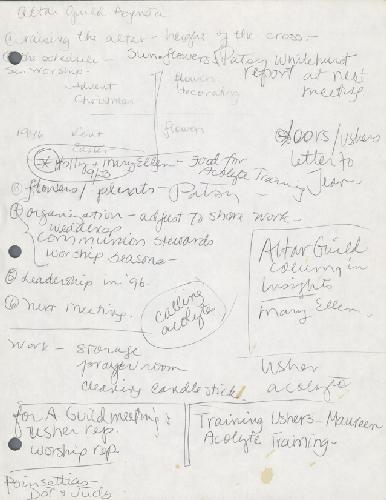 Altar Guild Agenda
① raising the altar - height of the cross -
② the schedule - Sunflowers / Patsy Whitehurst
Sun. Worship - flowers report at next
Advent Decorating meeting
Christmas
1996 Lent flowers
Easter
Doors/Ushers
letter to
Jean
Holly & Mary Ellen - food for
9/23 Acolyte Training
③ flowers / plants - Patsy
④ organization - adjust to share work -
weddings
communion stewards
worship seasons -
Altar Guild
column in
Insights
Mary Ellen
⑤ Leadership in '96.
⑥ Next meeting.
calling
acolytes
Work - storage
prayer room
cleaning candlestick
Usher
acolyte
for A Guild meeting:
usher rep.
worship rep.
Training Ushers - Maureen
Acolyte Training -
Poinsettias -
Dot & Judy